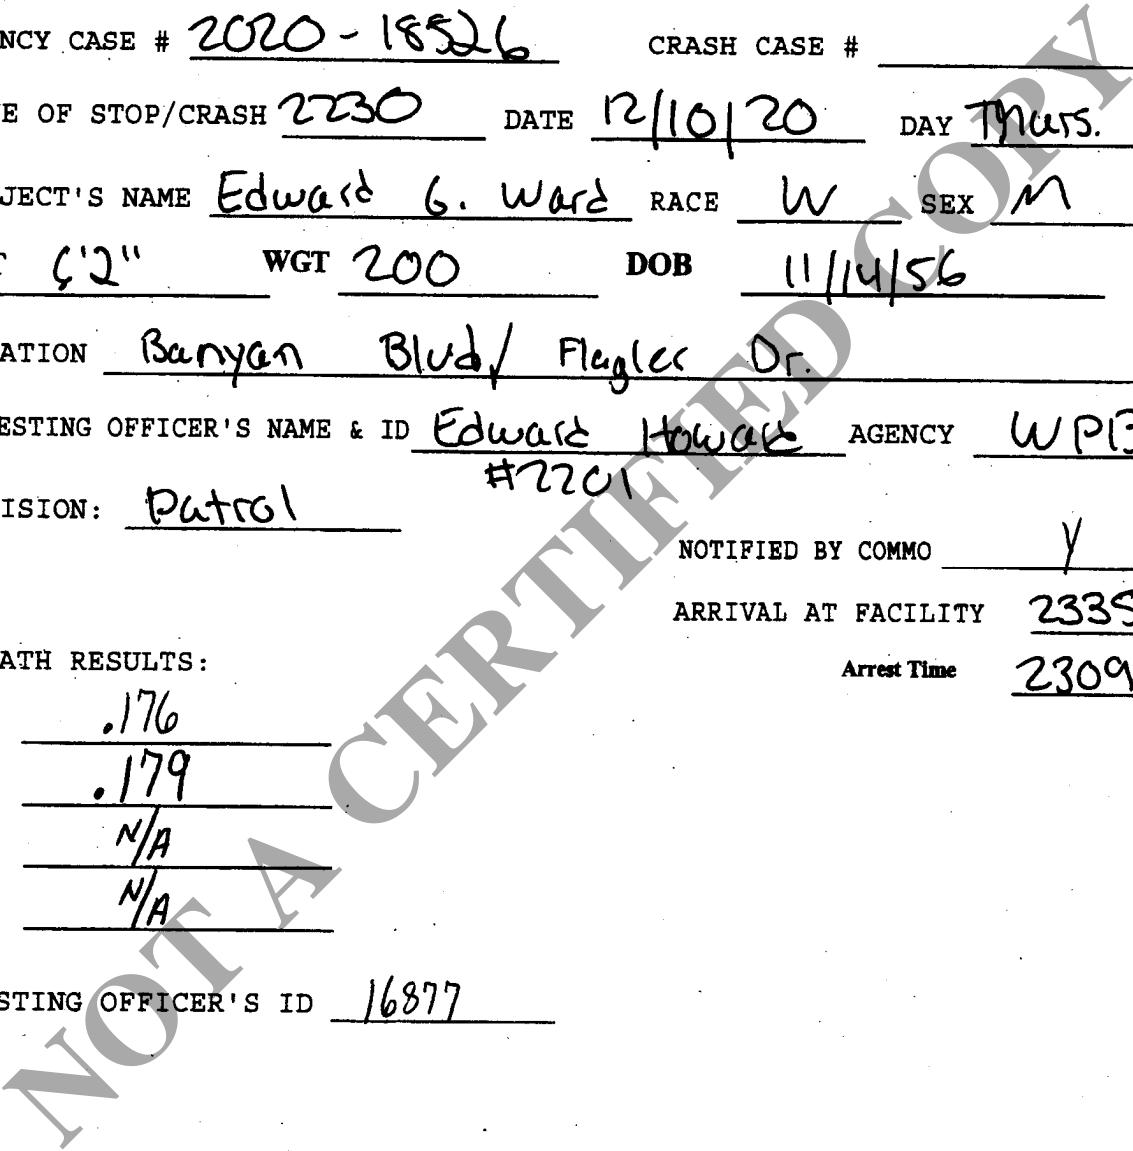 NCY CASE # 2020-18526 CRASH CASE #
E OF STOP/CRASH 2230 DATE 12/10/20 DAY Thurs.
JECT'S NAME Edward G. Ward RACE W SEX M
T 6'2" WGT 200 DOB 11/14/56
ATION Banyan Blvd/ Flagler Dr.
ESTING OFFICER'S NAME & ID Edward Howard AGENCY WPB
#2201
ISION: Patrol
NOTIFIED BY COMMO Y
ARRIVAL AT FACILITY 2335
ATH RESULTS: Arrest Time 2309
.176
.179
N/A
N/A
STING OFFICER'S ID 16877
NOT A CERTIFIED COPY